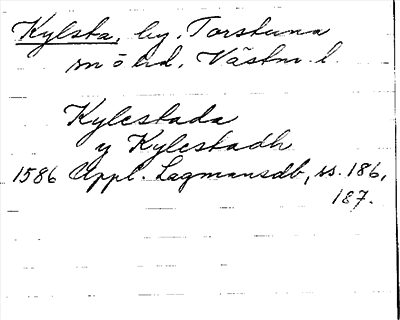 Kylsta, by, Torstuna
sn ö hd, Västm. l.
Kylestada
y Kylestadh
1586 Uppl. Lagmansdb, ss. 186,
187.